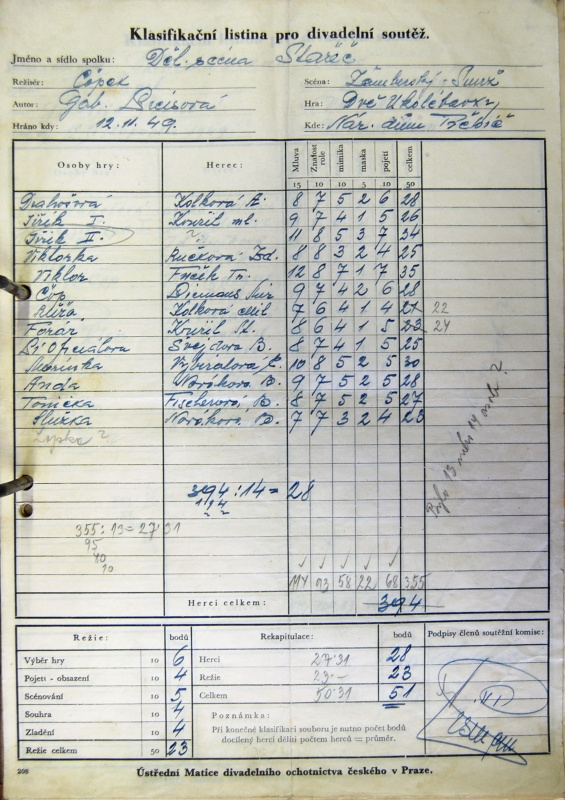 Klasifikační listina pro divadelní soutěž.
Jméno a sídlo spolku: Děl. scéna Stařeč
Režisér: Čópek Scéna: Žamberský - Smrž
Autor: Gab. Preissová Hra: Dvě Ukolébavky
Hráno kdy: 12.11.49. Kde: Nár. dům Třebíč
Osoby hry: Herec: Mluva Znalost role mimika maska pojetí celkem
15 10 10 5 10 50
Kolková A. 8 7 5 2 6 28
Jiřík I. Kouřil ml. 9 7 4 1 5 26
Jiřík II. ? 11 8 5 3 7 34
Viktorka Zd. 8 8 3 2 4 25
Viktor 12 8 7 1 7 35
Čóp 9 7 4 2 6 28
Kolková 7 6 4 1 4 21 22
Kouřil St. 8 6 4 1 5 23 24
Švejdova B. 8 7 4 1 5 25
Mařinka Vybíralová 10 8 5 2 5 30
Anda Nováková B. 9 7 5 2 5 28
Tonička Fischerová B. 8 7 5 2 5 27
Služka Nováková B. 7 7 3 2 4 23
394 : 14 = 28
114
355 : 13 = 27·31
95
40
10
93 58 22 68 355
Herci celkem: 394
Režie: bodů Rekapitulace: bodů Podpisy členů soutěžní komise:
Výběr hry 10 6 Herci 27·31 28
Pojetí - obsazení 10 4 Režie 23·– 23
Scénování 10 5 Celkem 50·31 51
Souhra 10 4 Poznámka:
Zladění 10 4 Při konečné klasifikaci souboru je nutno počet bodů
Režie celkem 50 23 docílený herci děliti počtem herců = průměr.
208 Ústřední Matice divadelního ochotnictva českého v Praze.